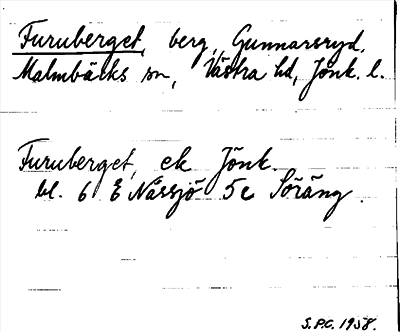 Furuberget, berg, Gunnarsryd,
Malmbäcks sn, Västra hd, Jönk. l.
Furuberget, ek Jönk.
bl. 6 E Nässjö 5c Söräng.
S.P.C. 1958.